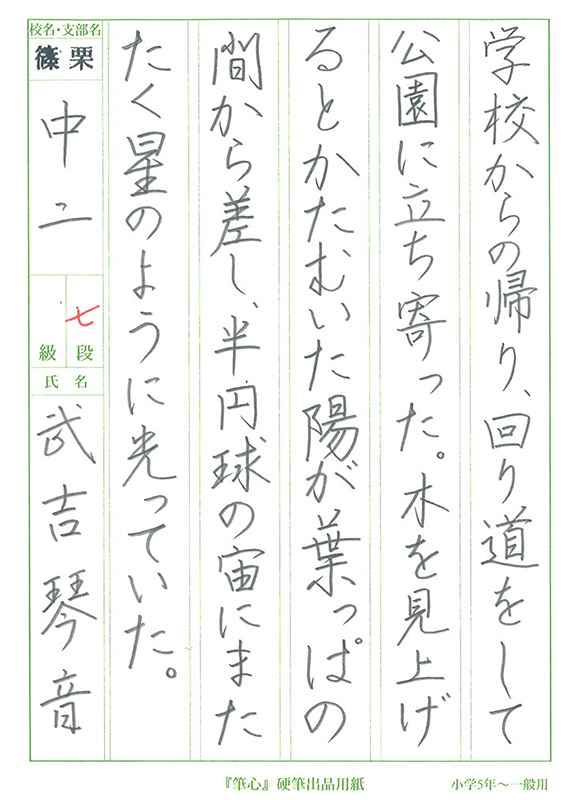 学校からの帰り、回り道をして
公園に立ち寄った。木を見上げ
るとかたむいた陽が葉っぱの
間から差し、半円球の宙にまた
たく星のように光っていた。
校名・支部名
篠栗
中二
七段
級
氏名
武吉琴音
『筆心』硬筆出品用紙
小学5年〜一般用